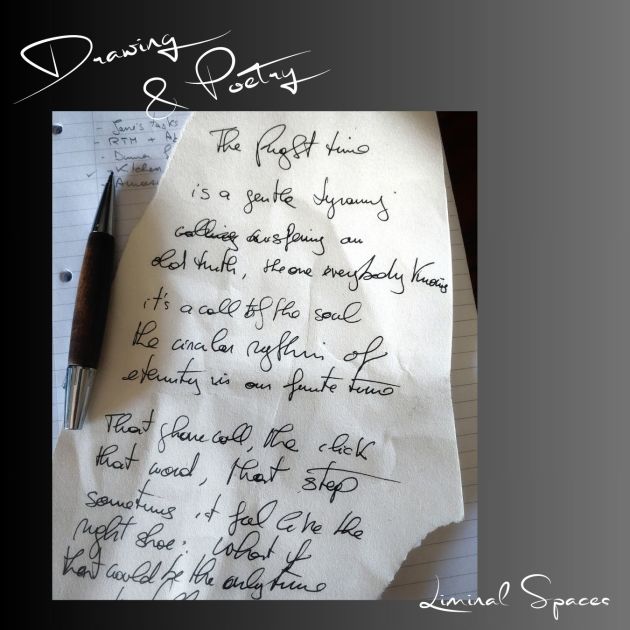 Drawing
& Poetry
- Jane's tasks
- RTM +
- Dinner
✓ Kitchen
The Right time
is a gentle tyranny
calling answering an
old truth, the one everybody knows
it's a call of the soul
the circular rythm of
eternity in our finite time
That phone call, the click
that word, that step
sometimes it feel like the
right shoe: what if
that would be the only time
Liminal Spaces